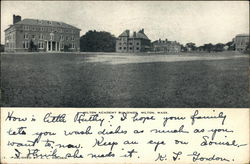 MILTON ACADEMY BUILDINGS, MILTON, MASS.
How is little Phitty? I hope your family
lets you wash dishes as much as you
want to now. Keep an eye on Louise
I think she needs it. K. L. Gordon.